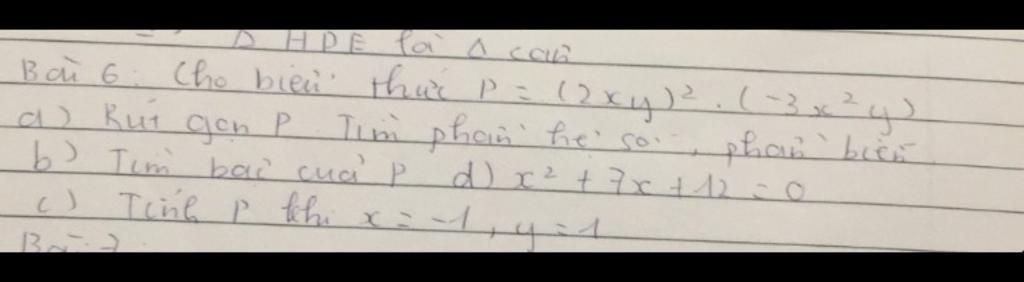 Δ HDE là Δ cân
Bài 6: Cho biểu thức P = (2xy)². (-3x²y)
a) Rút gọn P. Tìm phần hệ số, phần biến
b) Tìm bậc của P d) x² + 7x + 12 = 0
c) Tính P khi x = -1, y = 1
Bài 7